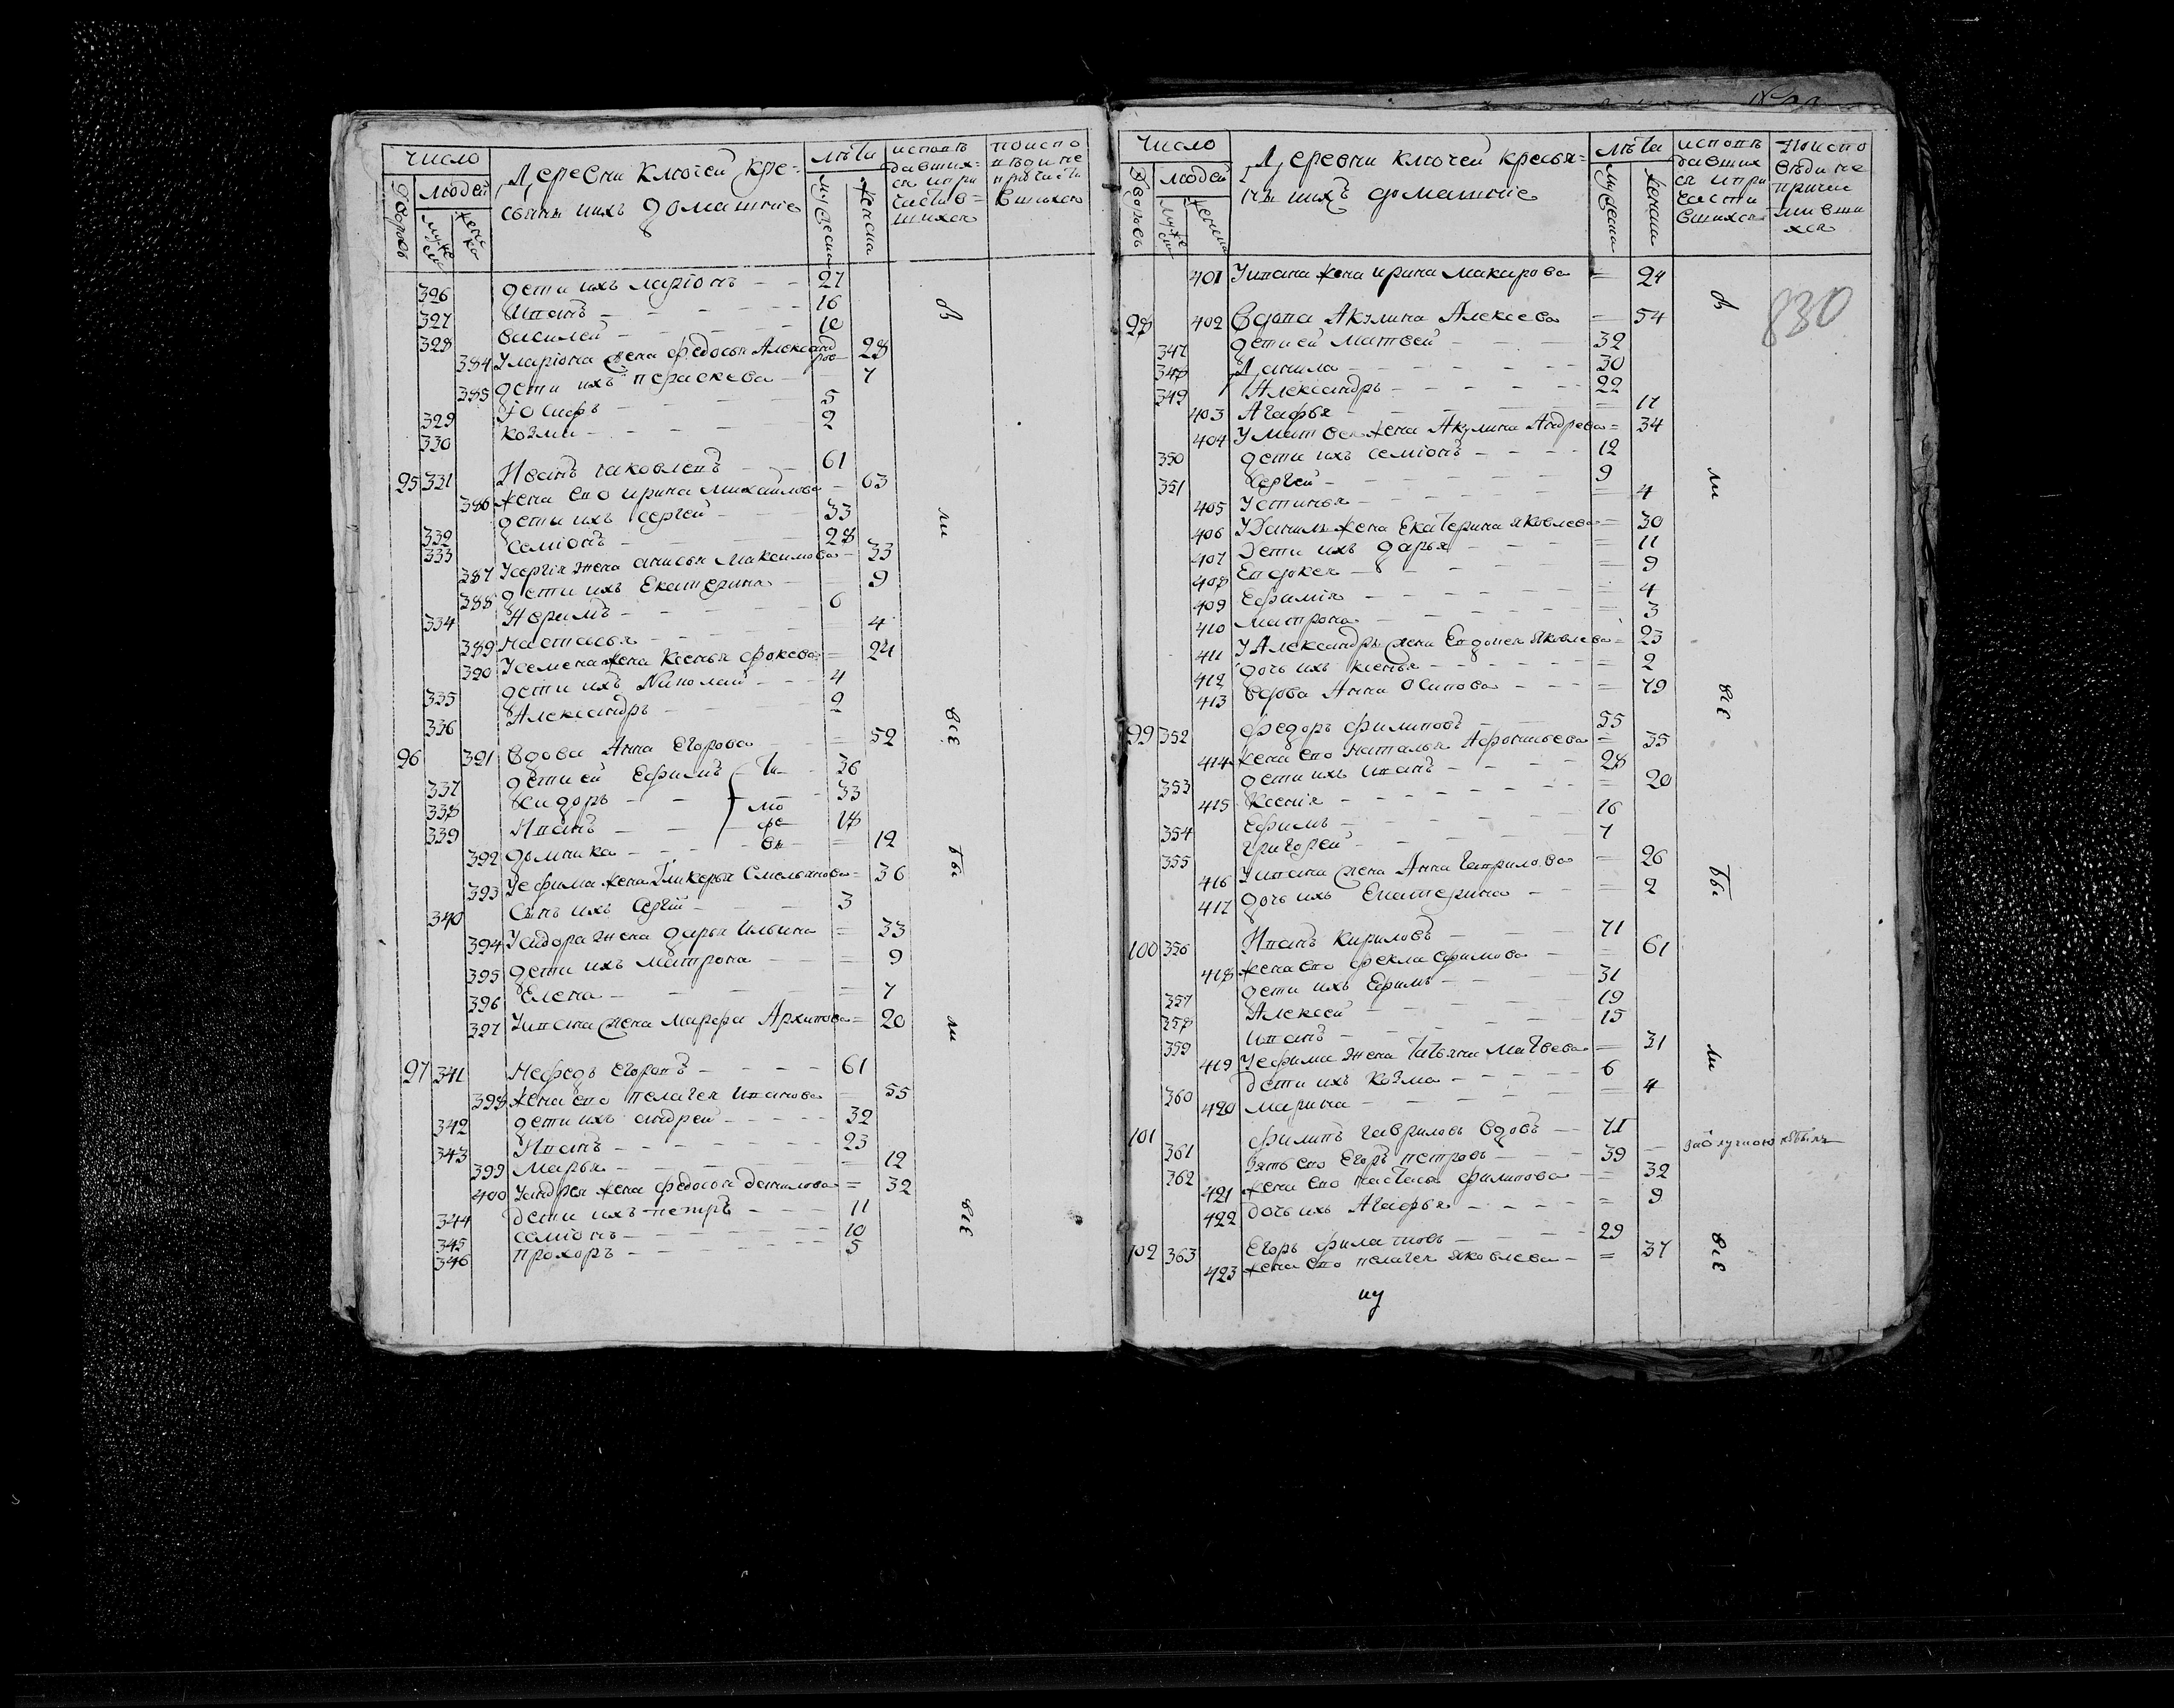 Число
людей
Дворовъ
муже ска
женска
Деревни Ключей кре=
стьяны ихъ домашние
лѣта
мужеска
женска
исповѣ
давших=
ся и при
частив=
шихся
по испо
вѣди не
причасти
вшихся
326 дети ихъ ларионъ - - 27
327 Иванъ - - 16
328 василей - - 10
384 У лариона жена федосья Александ рова 28
385 дети ихъ параскева - 7
329 Иосифъ - - 5
330 козма - - 2
95 331 Иванъ иаковлевъ - - 61
386 жена его ирина михайлова - 63
332 дети ихъ сергей - - 33
333 семионъ - - 28
387 У сергия жена анисья Максимова - 33
388 дети ихъ Екатерина - - 9
334 - - 6
389 настасья - - 4
390 У семена жена Ксенья фокева = 24
335 дети ихъ Николай - - 4
336 Александръ - - 2
96 391 вдова Анна Егорова - = 52
337 дети ей Ефимъ - 36
338 сидоръ - - 33
339 Иванъ - - 18
Ти
мо
фе
въ
392 домника - - 12
393 У ефима жена Гликерья Смельянова = 36
340 Сынъ ихъ Сергий - - 3
394 У сидора жена дарья Ильина = 33
395 дети ихъ матрона - - = 9
396 Елена - - = 7
397 У ивана жена марфа Архипова = 20
97 341 Нефедъ Егоровъ - - 61
398 жена его пелагея иванова = 55
342 дети ихъ андрей - - 32
343 Иванъ - - 23
399 Марья - - = 12
400 У андрея жена федосья данилова = 32
344 дети ихъ петръ - - 11
345 семионъ - - 10
346 прохоръ - - 5
в
ли
все
бы
ли
все
Число
людей
Дворовъ
муже ска
женска
Деревни ключей крестья=
ны ихъ домашние
лѣта
мужеска
женска
исповѣ
давших
ся и при
части
вшихся
По испо
вѣди не
причас
тивши
хся
830
401 У ивана жена ирина макарова = 24
98 402 Вдова Акулина Алексеева = 54
347 дети ей матвей - - 32
348 Данила - - 30
349 Александръ - - 22
403 Агафья - - = 17
404 У матвея жена Акулина Андреева = 34
350 дети ихъ семионъ - - 12
351 Сергей - - 9
405 Устинья - - = 4
406 У Данилы жена Екатерина яковлева = 30
407 Дети ихъ дарья - - = 11
408 Евдокея - - = 9
409 Ефимия - - = 4
410 матрона - - = 3
411 У Александра жена Евдокея яковлева = 23
412 дочь ихъ ксенья - - = 2
413 вдова Анна Осипова - - = 79
99 352 Федоръ филиповъ - - 55
414 жена его Наталья Афонасьева = 35
353 дети ихъ иванъ - - 28
415 Ксения - - = 20
354 Ефимъ - - 16
355 григорей - - 7
416 У ивана жена Анна Гаврилова = 26
417 дочь ихъ Екатерина - - = 2
100 356 Иванъ кириловъ - - 71
418 жена его фекла ефимова = 61
357 дети ихъ Ефимъ - - 31
358 Алексей - - 19
359 иванъ - - 15
419 У ефима жена Татьяна Матвеева = 31
360 дети ихъ козма - - 6
420 марина - - = 4
101 361 филипъ гавриловъ вдовъ - 71
362 зять его Егоръ петровъ - - 39 - за отлучкою небылъ
421 жена его настасья филипова = 32
422 дочь ихъ Агафья - - = 9
102 363 Егоръ филатовъ - - 29
423 жена его пелагея яковлева - = 37
в
ли
все
бы
ли
все